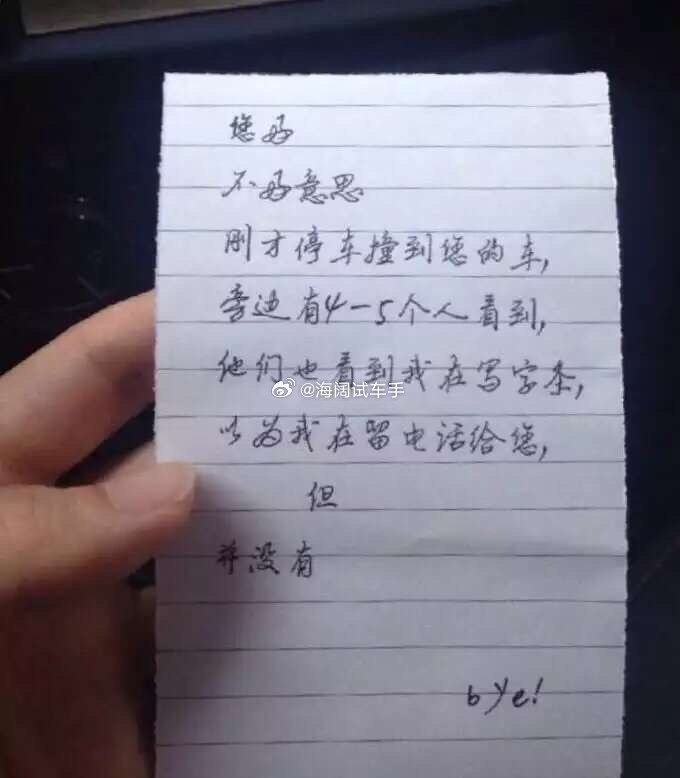 您好
不好意思
刚才停车撞到您的车,
旁边有4-5个人看到,
他们也看到我在写字条,
@海阔试车手
以为我在留电话给您,
但
并没有
bye!